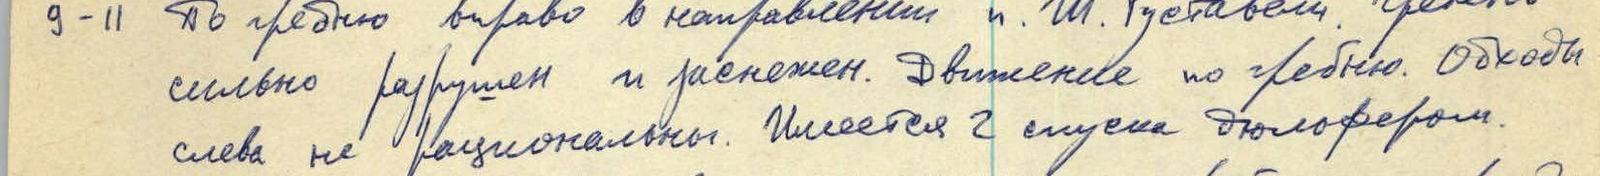 9-11 По гребню вправо в направлении п. Ш. Руставели. Гребень
сильно разрушен и заснежен. Движение по гребню. Обходы
слева не рациональны. Имеется 2 спуска дюльфером.